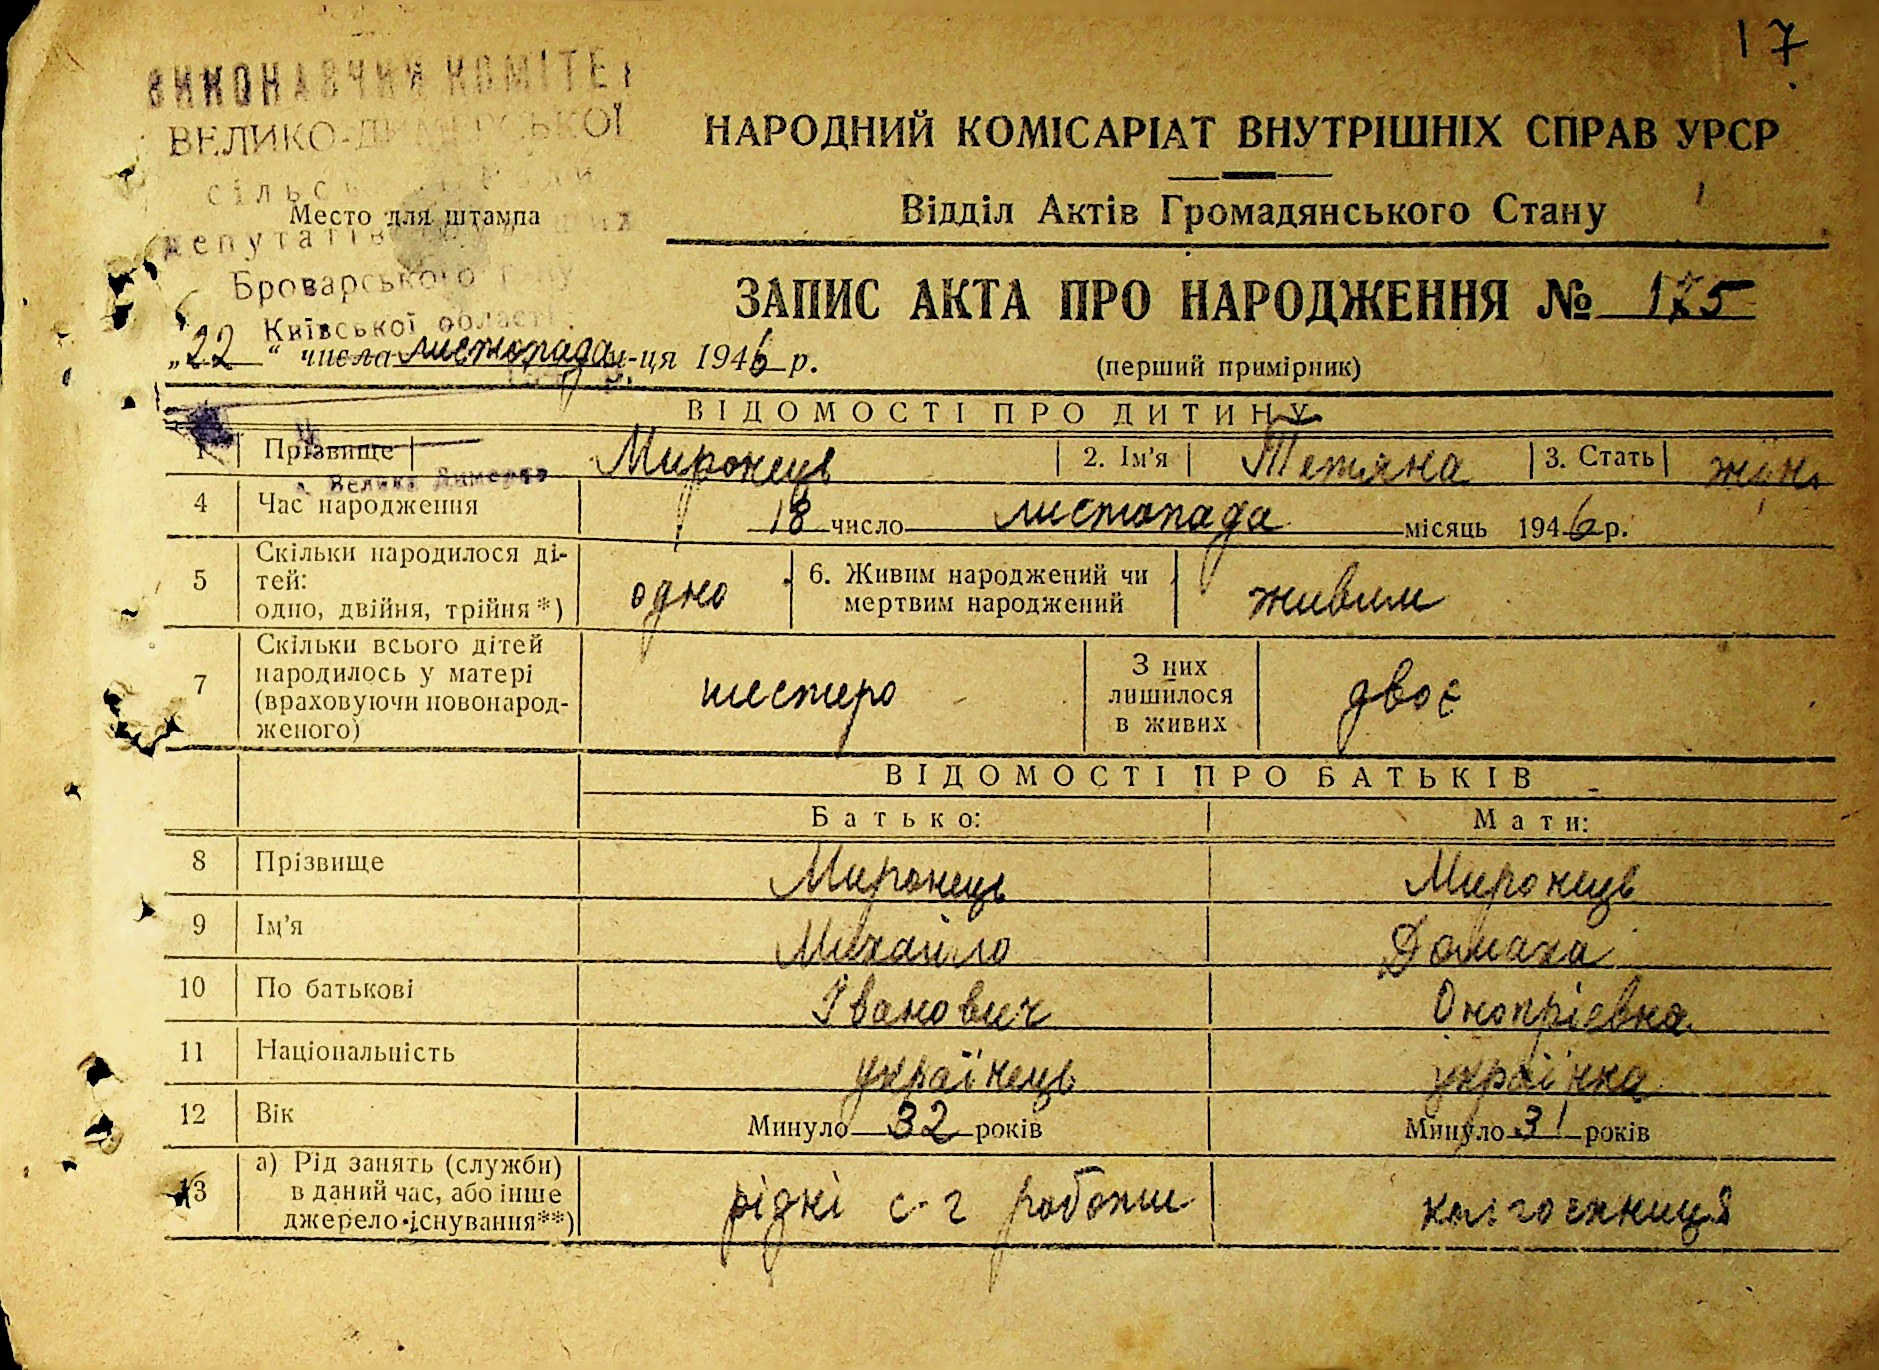 17
ВИКОНАВЧИЙ КОМІТЕТ
ВЕЛИКО-ДИМЕРСЬКОЇ
НАРОДНИЙ КОМІСАРІАТ ВНУТРІШНІХ СПРАВ УРСР
Место для штампа
Відділ Актів Громадянського Стану
депутатів
Броварського
Київської області
ЗАПИС АКТА ПРО НАРОДЖЕННЯ № 175
„22“ числа листопада м-ця 1946 р.
(перший примірник)
ВІДОМОСТІ ПРО ДИТИНУ
1 Прізвище Миронець 2. Ім'я Тетяна 3. Стать жін.
с. Велика Димерка
4 Час народження 18 число листопада місяць 1946 р.
5 Скільки народилося ді-
тей:
одно, двійня, трійня*) одно 6. Живим народжений чи
мертвим народжений живим
7 Скільки всього дітей
народилось у матері
(враховуючи новонарод-
женого) шестеро З них
лишилося
в живих двоє
ВІДОМОСТІ ПРО БАТЬКІВ
Батько: Мати:
8 Прізвище Миронець Миронець
9 Ім'я Михайло Домаха
10 По батькові Іванович Онопріевна
11 Національність українець українка
12 Вік Минуло 32 років Минуло 31 років
13 а) Рід занять (служби)
в даний час, або інше
джерело існування**) рідкі с-г роботи колгоспниця